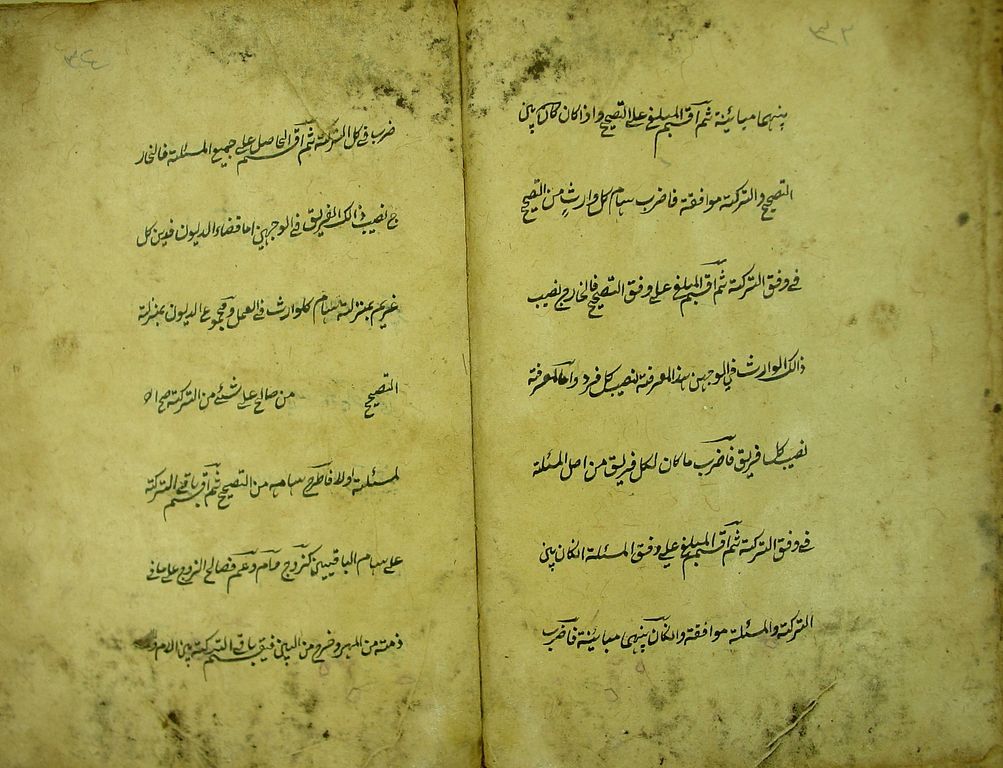 ٣٢
بينهما مباينة ثم اقسم المبلغ على التصحيح واذا كان كان بين
التصحيح والتركة موافقة فاضرب سهام كل وارث من التصحيح
فى وفق التركة ثم اقسم المبلغ على وفق التصحيح فالخارج نصيب
ذالك الوارث في الوجهين هذا المعرفة نصيب كل فرد واما المعرفة
نصيب كل فريق فاضرب ما كان لكل فريق من اصل المسئلة
في وفق التركة ثم اقسم المبلغ على وفق المسئلة انكان بين
التركة والمسئلة موافقة وانكان بينهما مباينة فاضرب
ضرب فى كل التركة ثم اقسم الحاصل على جميع المسئلة فالخار
ج نصيب ذالك الفريق فى الوجهين اما قضاء الديون فدين كل
غريم بمنزلة سهام كلوارث فى العمل ومجموع الديون بمنزلة
التصحيح من صالح على شئ من التركة صح ال
لمسئلة اولا فاطرح سهامه من التصحيح ثم اقسم باقى التركة
على سهام الباقيين كزوج وام وعم فصالح الزوج على مافى
ذمته من المهر وخرج من البين فيقسم باقى التركة بين الام و